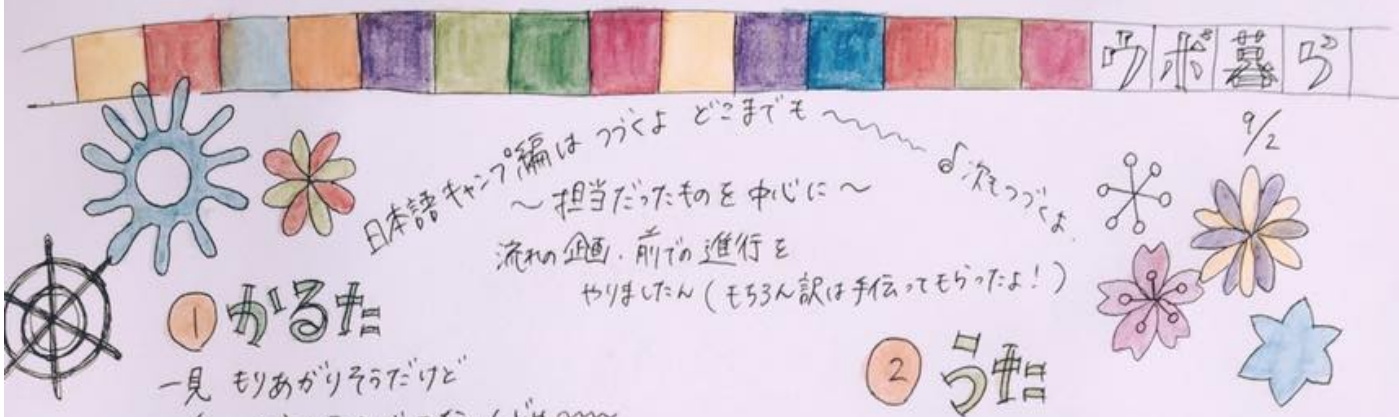 ウボ暮らう
9/2
日本語キャンプ編は つづくよ どこまでも〜〜〜♪次もつづくよ
〜担当だったものを中心に〜
流れの企画・前での進行を
やりましたん(もちろん訳は手伝ってもらったよ!)
① かるた
② うた
一見 もりあがりそうだけど